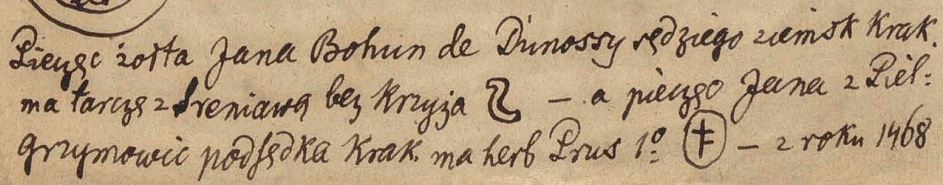 Pieczęc żołta Jana Bohun de Dunossy sędziego ziemsk Krak.
ma tarczę z Sreniawą bez Krzyża — a pieczęc Jana z Piel-
grzymowic podsędka Krak. ma herb Prus 1º — z roku 1468